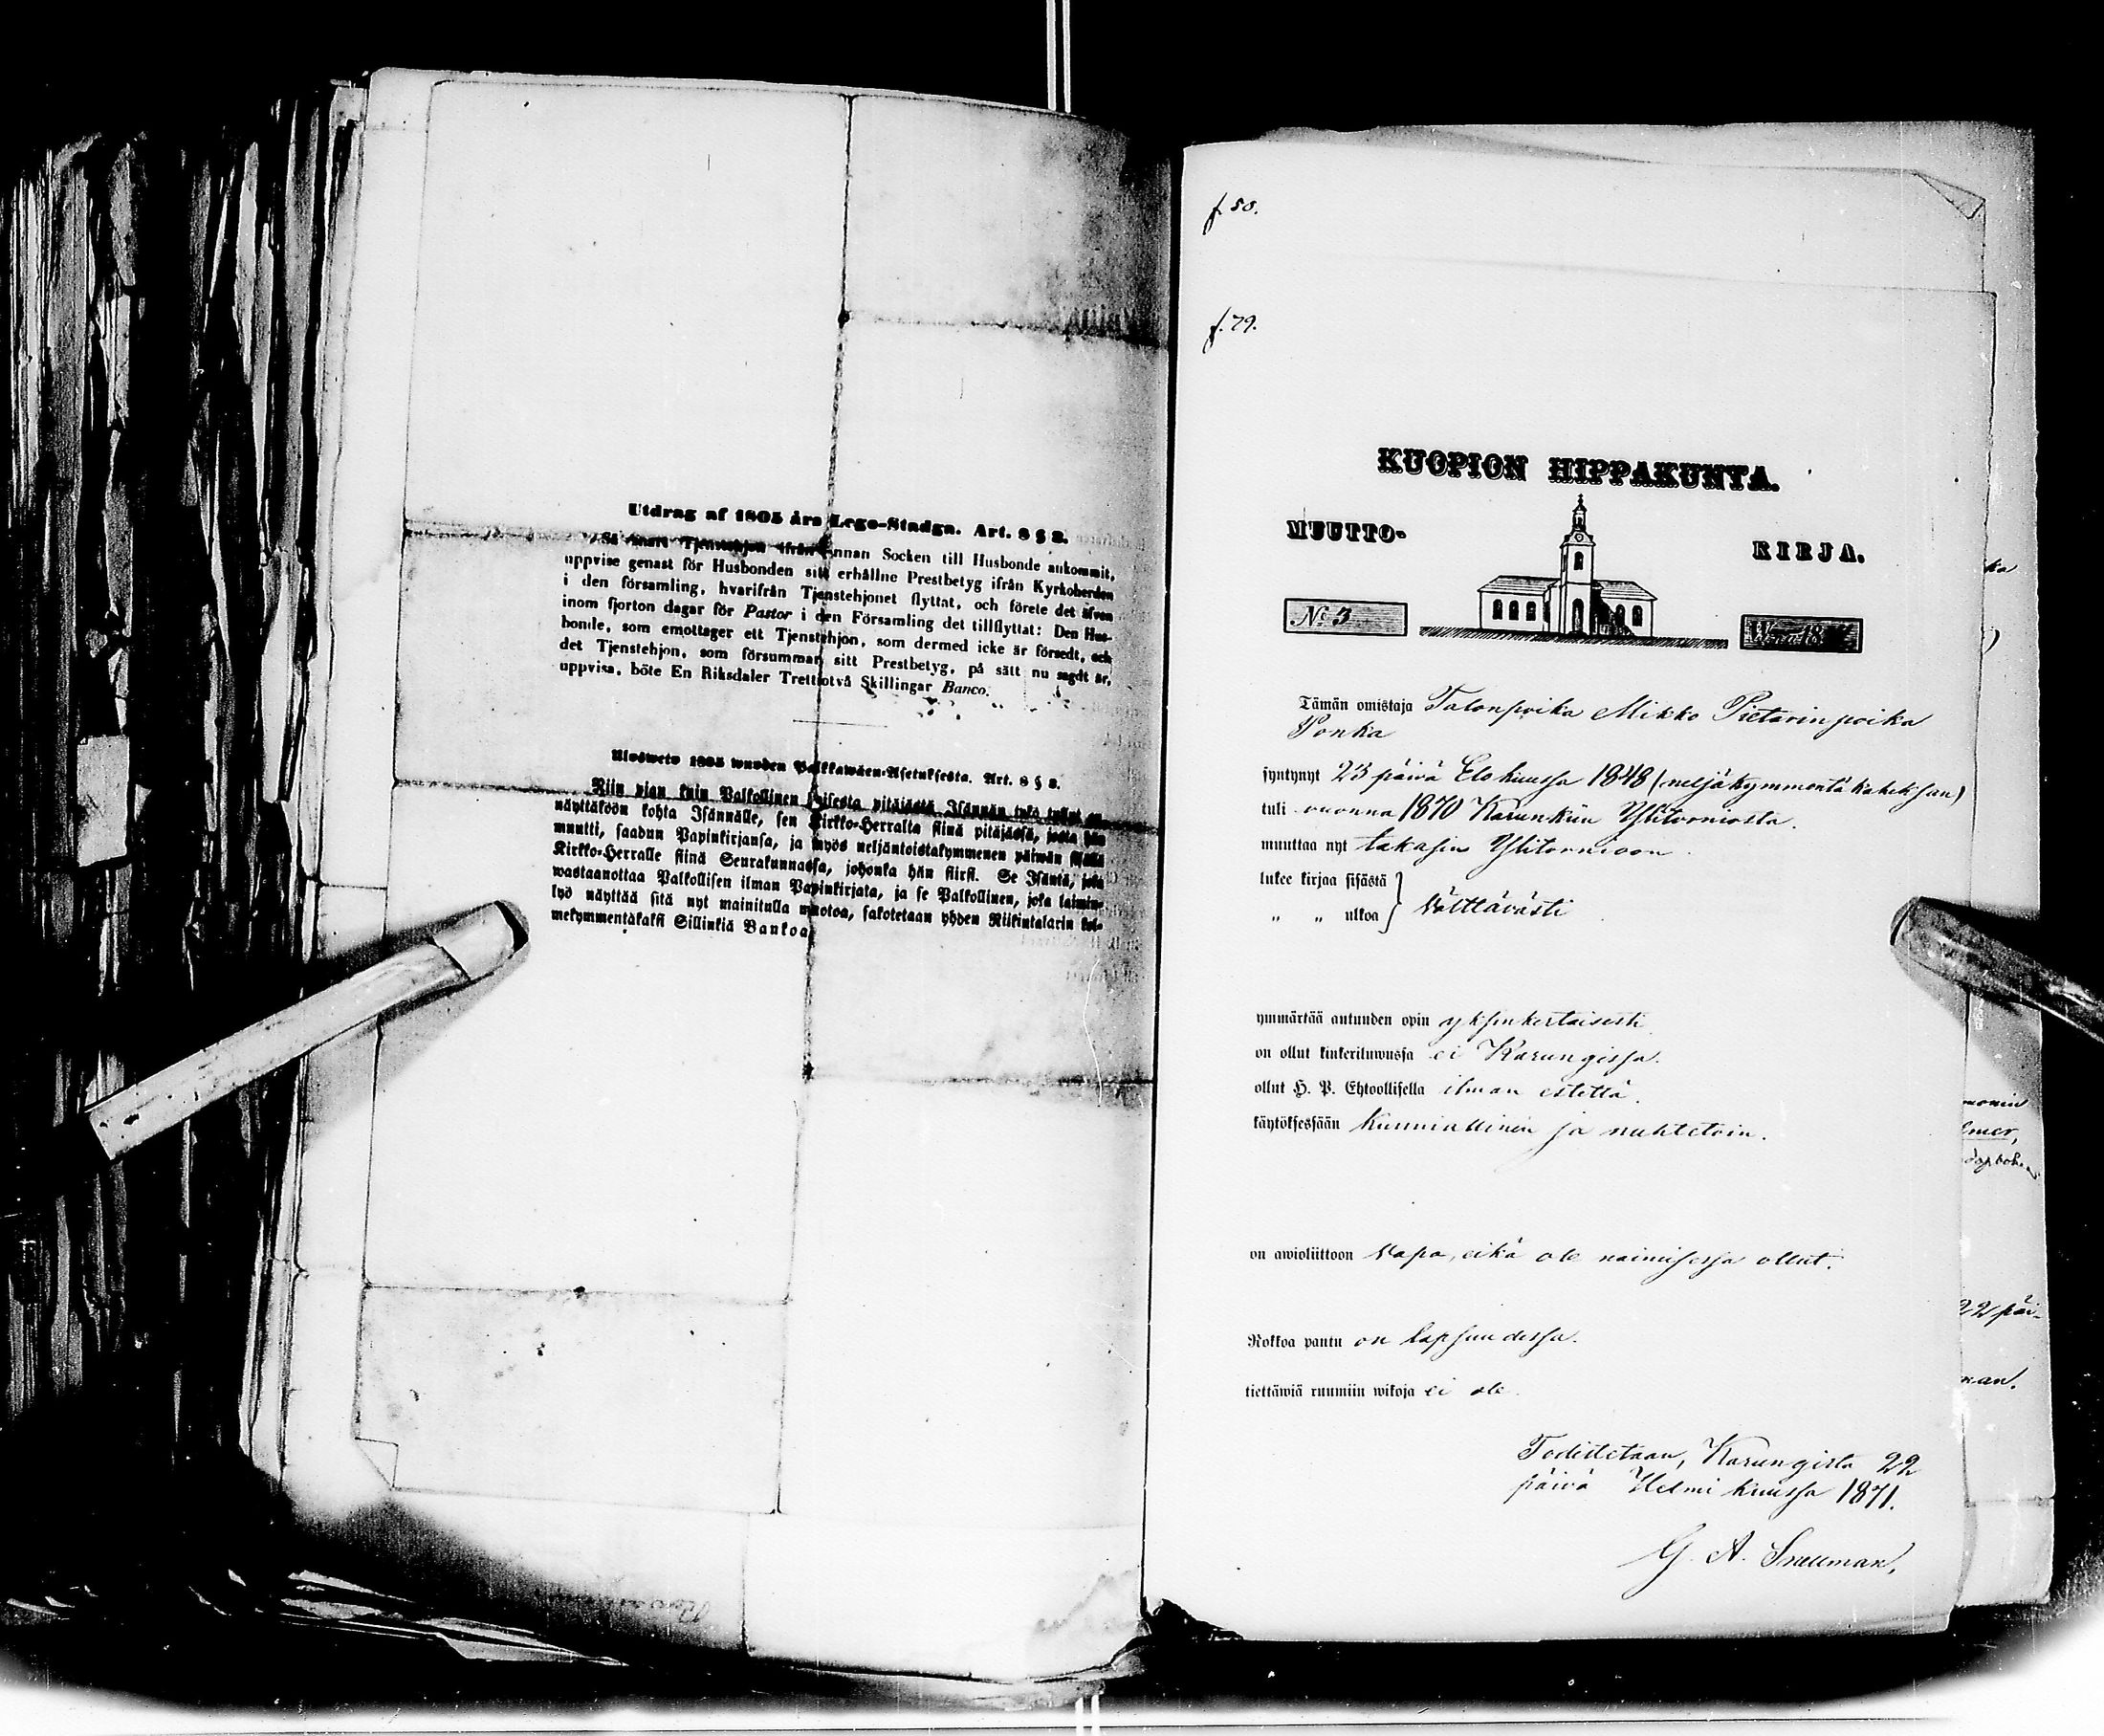 Utdrag af 1805 års Lego-Stadga. Art. 8 § 2.
Så snart Tjenstehjon ifrån annan Socken till Husbonde ankommit,
uppvise genast för Husbonden sitt erhållne Prestbetyg ifrån Kyrkoherden
i den församling, hvarifrån Tjenstehjonet flyttat, och förete det äfven
inom fjorton dagar för Pastor i den Församling det tillflyttat: Den Hus-
bonde, som emottager ett Tjenstehjon, som dermed icke är försedt, och
det Tjenstehjon, som försummar sitt Prestbetyg, på sätt nu sagdt är,
uppvisa, böte En Riksdaler Trettiotvå Skillingar Banco.
Ulosweto 1805 wuoden Palkkawäen-Asetuksesta. Art. 8 § 2.
Niin pian kuin Palkollinen toisesta pitäjästä Isännän tykö tullut on,
näyttäköön kohta Isännälle, sen Kirkko-Herralta siinä pitäjässä, josta hän
muutti, saadun Papinkirjansa, ja myös neljäntoistakymmenen päiwän sisällä
Kirkko-Herralle siinä Seurakunnassa, johonka hän siirsi. Se Isäntä, joka
wastaanottaa Palkollisen ilman Papinkirjata, ja se Palkollinen, joka laimin-
lyö näyttää sitä nyt mainitulla muotoa, sakotetaan yhden Riikintalarin kol-
mekymmentäkaksi Sillinkiä Bankoa.
f. 80.
f. 79.
KUOPION HIPPAKUNTA.
MUUTTO-
KIRJA.
No 3
Tämän omistaja Talonpoika Mikko Pietarinpoika
Ponka
syntynyt 23 päivä Elokuussa 1848 (neljäkymmentäkaheksan)
tuli vuonna 1870 Karunkiin Ylitorniosta.
muuttaa nyt takasin Ylitornioon.
lukee kirjaa sisästä
„ „ ulkoa } Välttävästi
ymmärtää autuuden opin yksinkertaisesti
on ollut kinkeriluwussa ei Karungissa.
ollut H. P. Ehtoollisella ilman estettä.
käytöksessään kunniallinen ja nuhtetoin.
on awioliittoon Vapa, eikä ole naimisessa ollut.
Rokkoa pantu on lapsuudessa.
tiettäwiä ruumiin wikoja ei ole.
Todistetaan, Karungista 22
päivä Helmikuussa 1871.
G. A. Snellman,